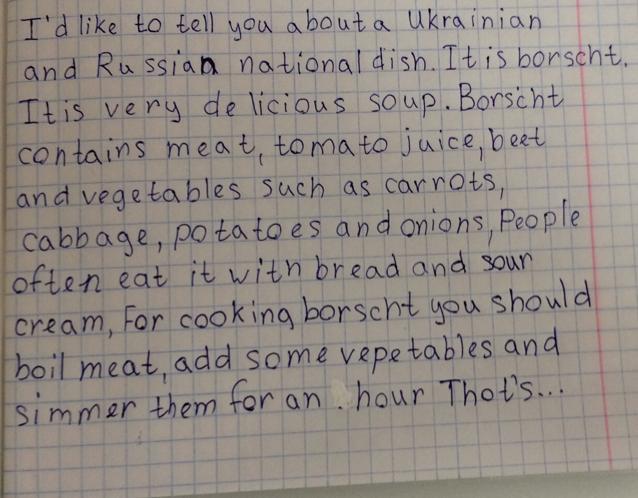 I'd like to tell you about a Ukrainian
and Russian national dish. It is borscht.
It is very delicious soup. Borscht
contains meat, tomato juice, beet
and vegetables such as carrots,
cabbage, potatoes and onions, People
often eat it with bread and sour
cream, For cooking borscht you should
boil meat, add some vepetables and
simmer them for an. hour Thot's...